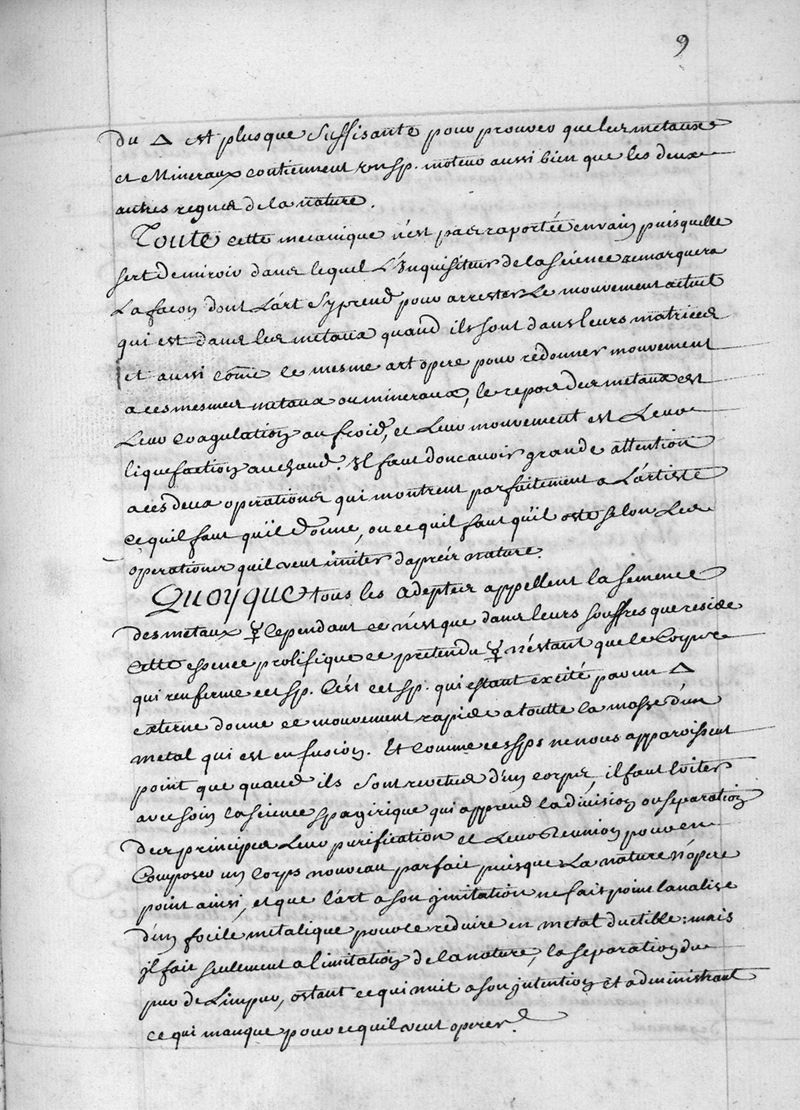 9
du 🜂 est plus que suffisante pour prouver que les metaux
et Mineraux contiennent un sp. moteur aussi bien que les deux
autres regnes de la nature.
Toute cette mecanique n'est pas raportée en vain puisquelle
sert de miroir dans lequel L'Inquisiteur de la science remarquera
La façon dont L'art s'y prend pour arrester Le mouvement actuel
qui est dans les metaux quand ils sont dans leurs matrices
et aussi come le mesme art opere pour redonner mouvement
a ces mesmes metaux ou mineraux, le repos des metaux est
Leur coagulation au froid, et Leur mouvement est Leur
liquefaction au chaud. Il faut donc avoir grande attention
a ces deux operations qui montrent parfaitement a L'artiste
ce quil faut quil donne, ou ce quil faut qu'il oste selon Les
operations quil veut imiter d'apres nature.
Quoyque tous les adeptes appellent la semence
des metaux ☿ Cependant ce n'est que dans leurs souffres que reside
cette essence prolifique ce pretendu ☿ n'estant que le Corps
qui renferme cet sp. C'est cet sp. qui estant excité par un 🜂
externe donne ce mouvement rapide a toutte la masse d'un
metal qui est en fusion. Et comme ces sps ne nous apparoissent
point que quand ils sont revetus d'un corps, il faut
avec soin la science spagirique qui apprend la division ou separation
des principes Leur purification et Leur Reunion pour en
Composer un Corps nouveau parfait puisque La nature n'opere
point ainsi, et que l'art a son jmitation ne fait point lanalise
d'un focile metalique pour le reduire en metal ductible: mais
jl fait seulement a limitation de la nature, la separation du
pur de Limpur, ostant ce qui nuit a son jntention et administrant
ce qui manque pour ce quil veut operer.